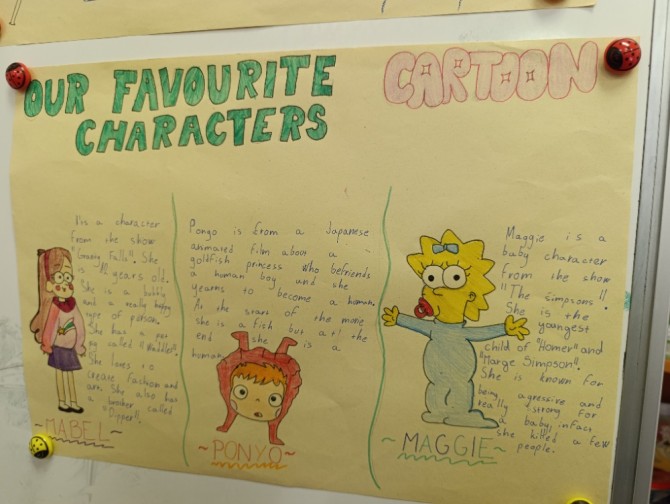 OUR FAVOURITE CARTOON
CHARACTERS
It's a character
from the show
"Gravity Falls". She
is 12 years old.
She is a bubbly
and a really happy
type of person.
She has a pet
pig called "Waddles".
She loves to
create fashion and
art. She also has
a brother called
"Dipper".
~MABEL~
Pongo is from a Japanese
animated film about a
goldfish princess who befriends
a human boy and she
yearns to become a human.
At the start of the movie
she is a fish but at the
end she is a
human.
~PONYO~
Maggie is a
baby character
from the show
"The simpsons".
She is the
youngest
child of "Homer" and
"Marge Simpson".
She is known for
being agressive and
really strong for
a baby, infact
she killed a few
people.
~MAGGIE~